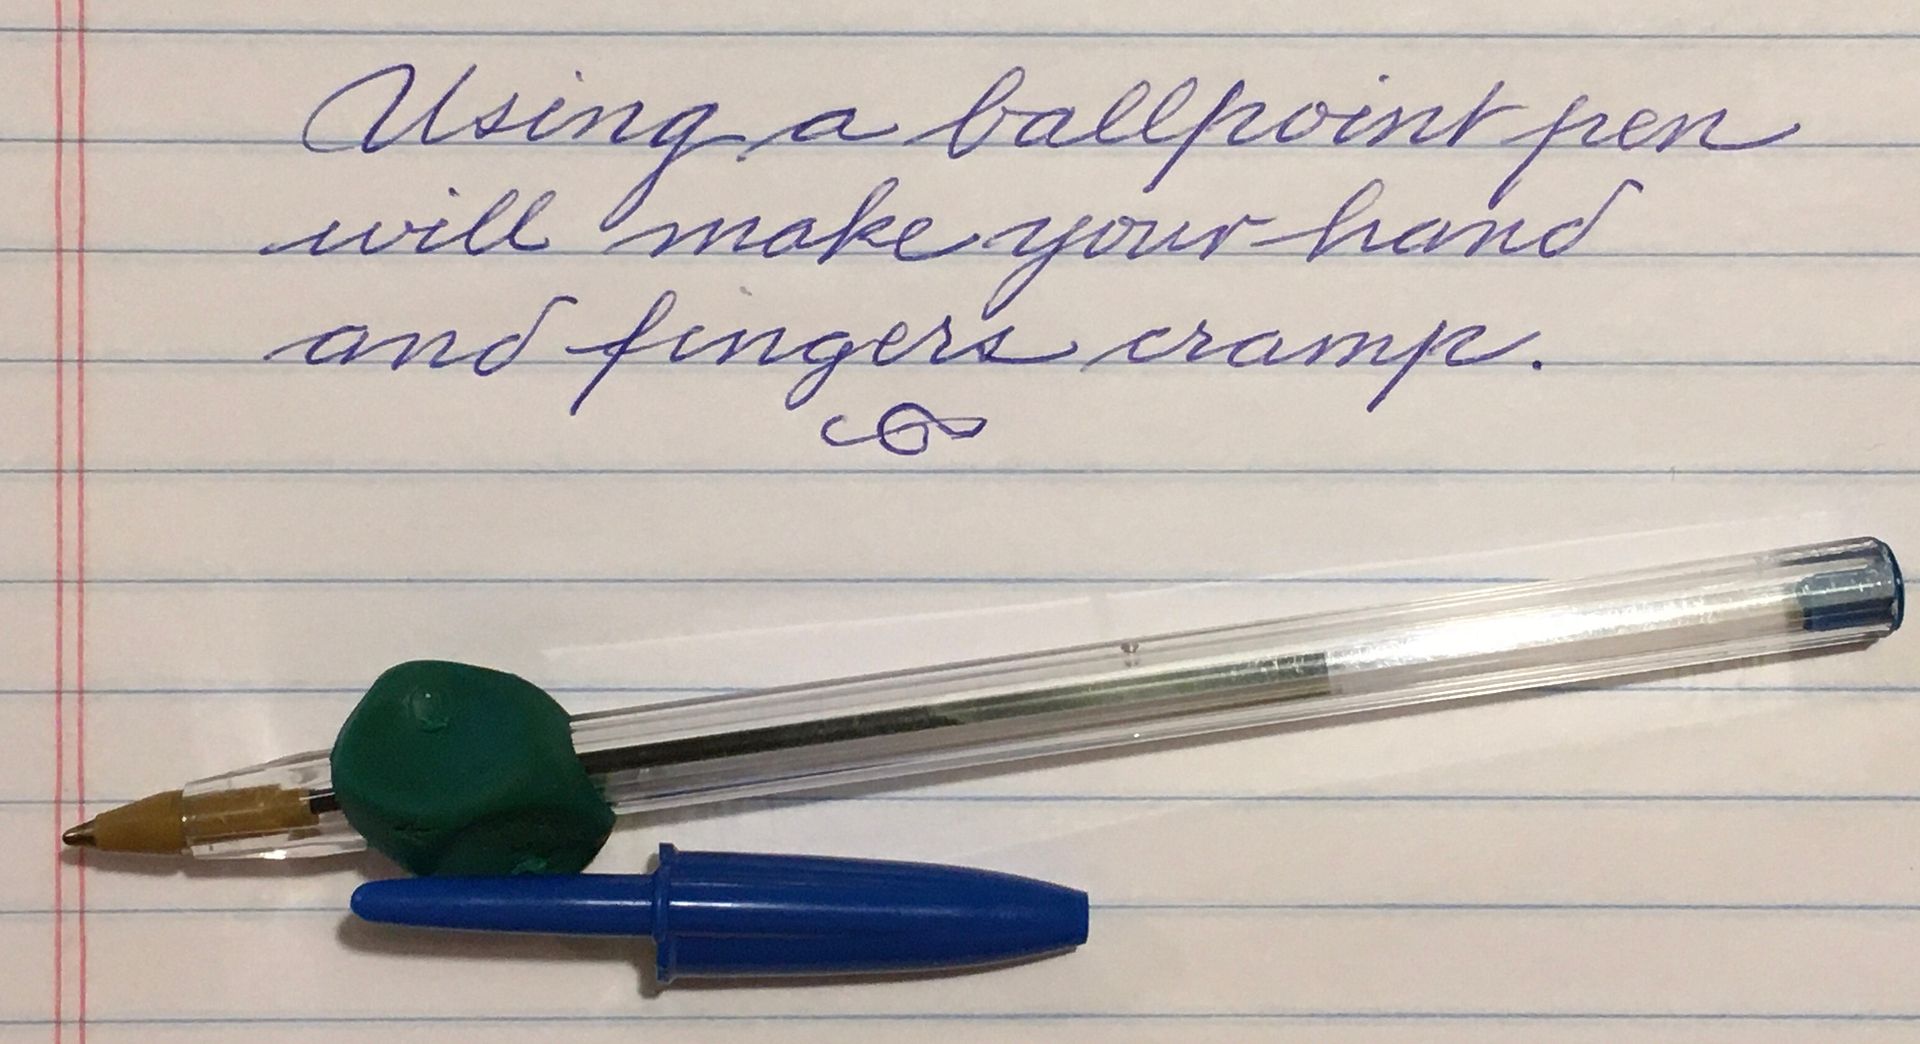 Using a ballpoint pen
will make your hand
and fingers cramp.